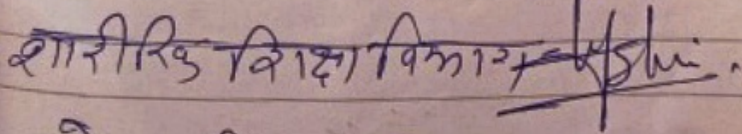 शारीरिक शिक्षा विभाग